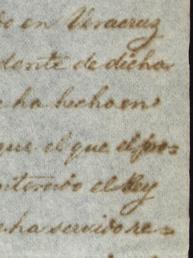 en Veracruz
dente de dicha
e ha hecho en
que el que el po=
intervino el Rey
e ha servido re=